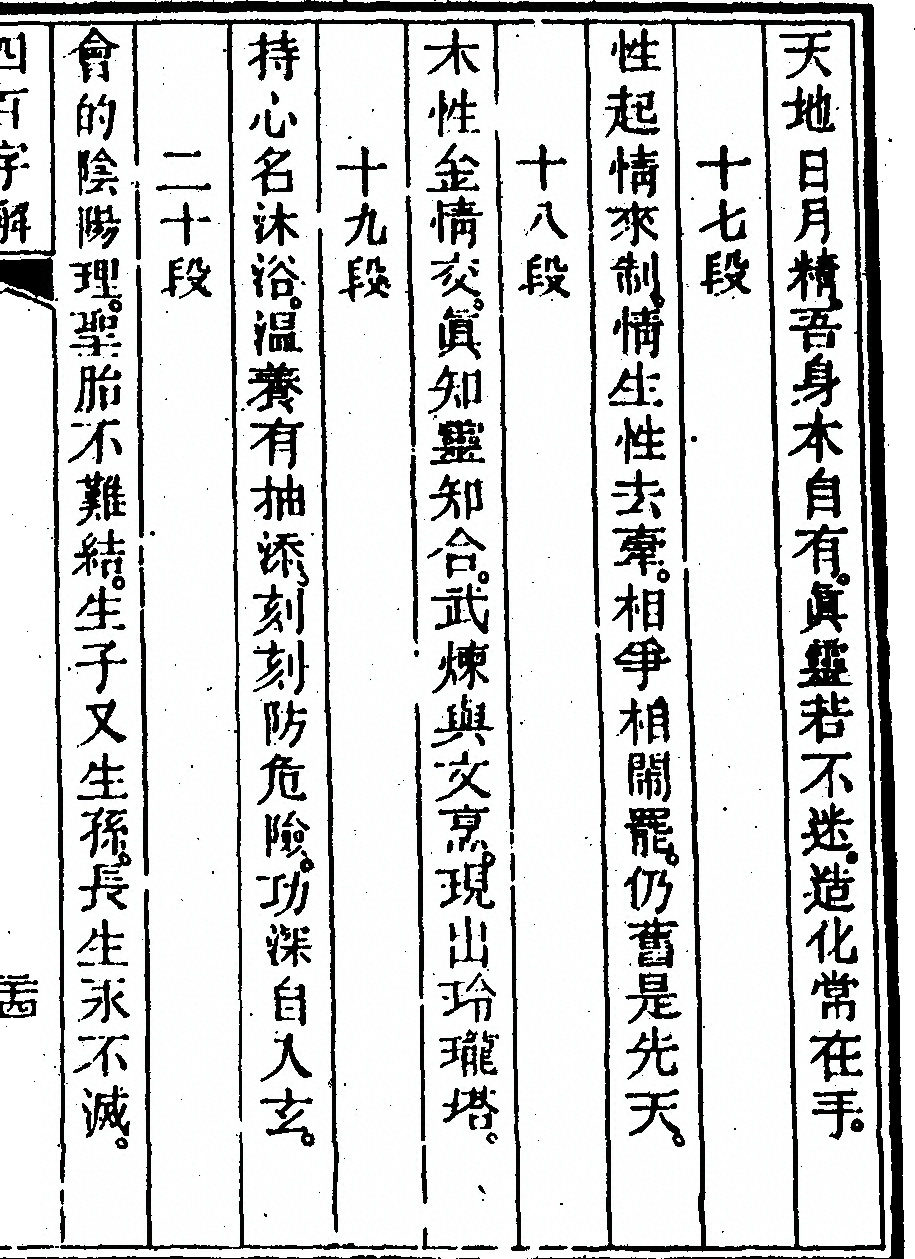 天地日月精。吾身本自有。眞靈若不迷。造化常在手。
十七段
性起情來制。情生性去牽。相爭相鬧罷。仍舊是先天。
十八段
木性金情交。眞知靈知合。武煉與文烹。現出玲瓏塔。
十九段
持心名沐浴。温養有抽添。刻刻防危險。功深自入玄。
二十段
會的陰陽理。聖胎不難結。生子又生孫。長生永不滅。
四百字解